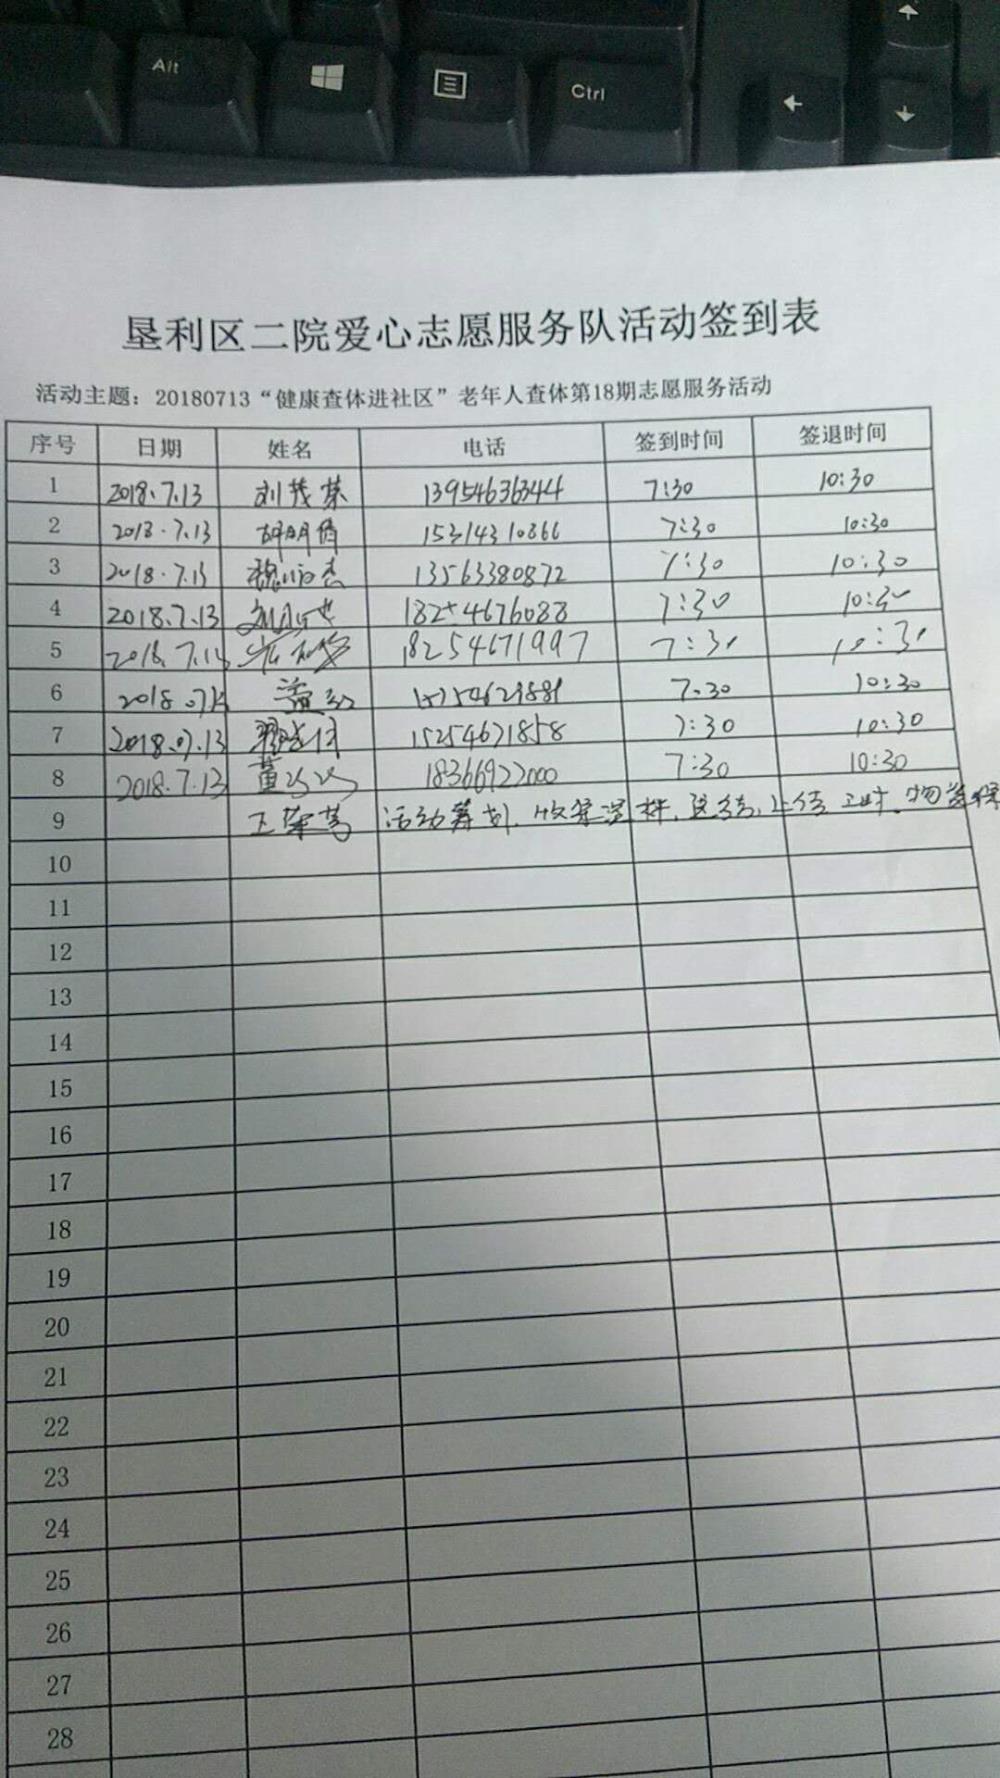 Alt
Ctrl
垦利区二院爱心志愿服务队活动签到表
活动主题：20180713“健康查体进社区”老年人查体第18期志愿服务活动
序号 日期 姓名 电话 签到时间 签退时间
1 2018.7.13 刘茂荣 13954636344 7:30 10:30
2 2018.7.13 15314310866 7:30 10:30
3 2018.7.13 13563380872 7:30 10:30
4 2018.7.13 4676088 7:30 10:30
5 2018.7.13 18254671997 7:30 10:30
6 2018.07.13 盖 7:30 10:30
7 2018.07.13 15254671858 7:30 10:30
8 2018.7.13 董 18366922000 7:30 10:30
9 活动筹划、收集资料、总结、上传 物资
10
11
12
13
14
15
16
17
18
19
20
21
22
23
24
25
26
27
28